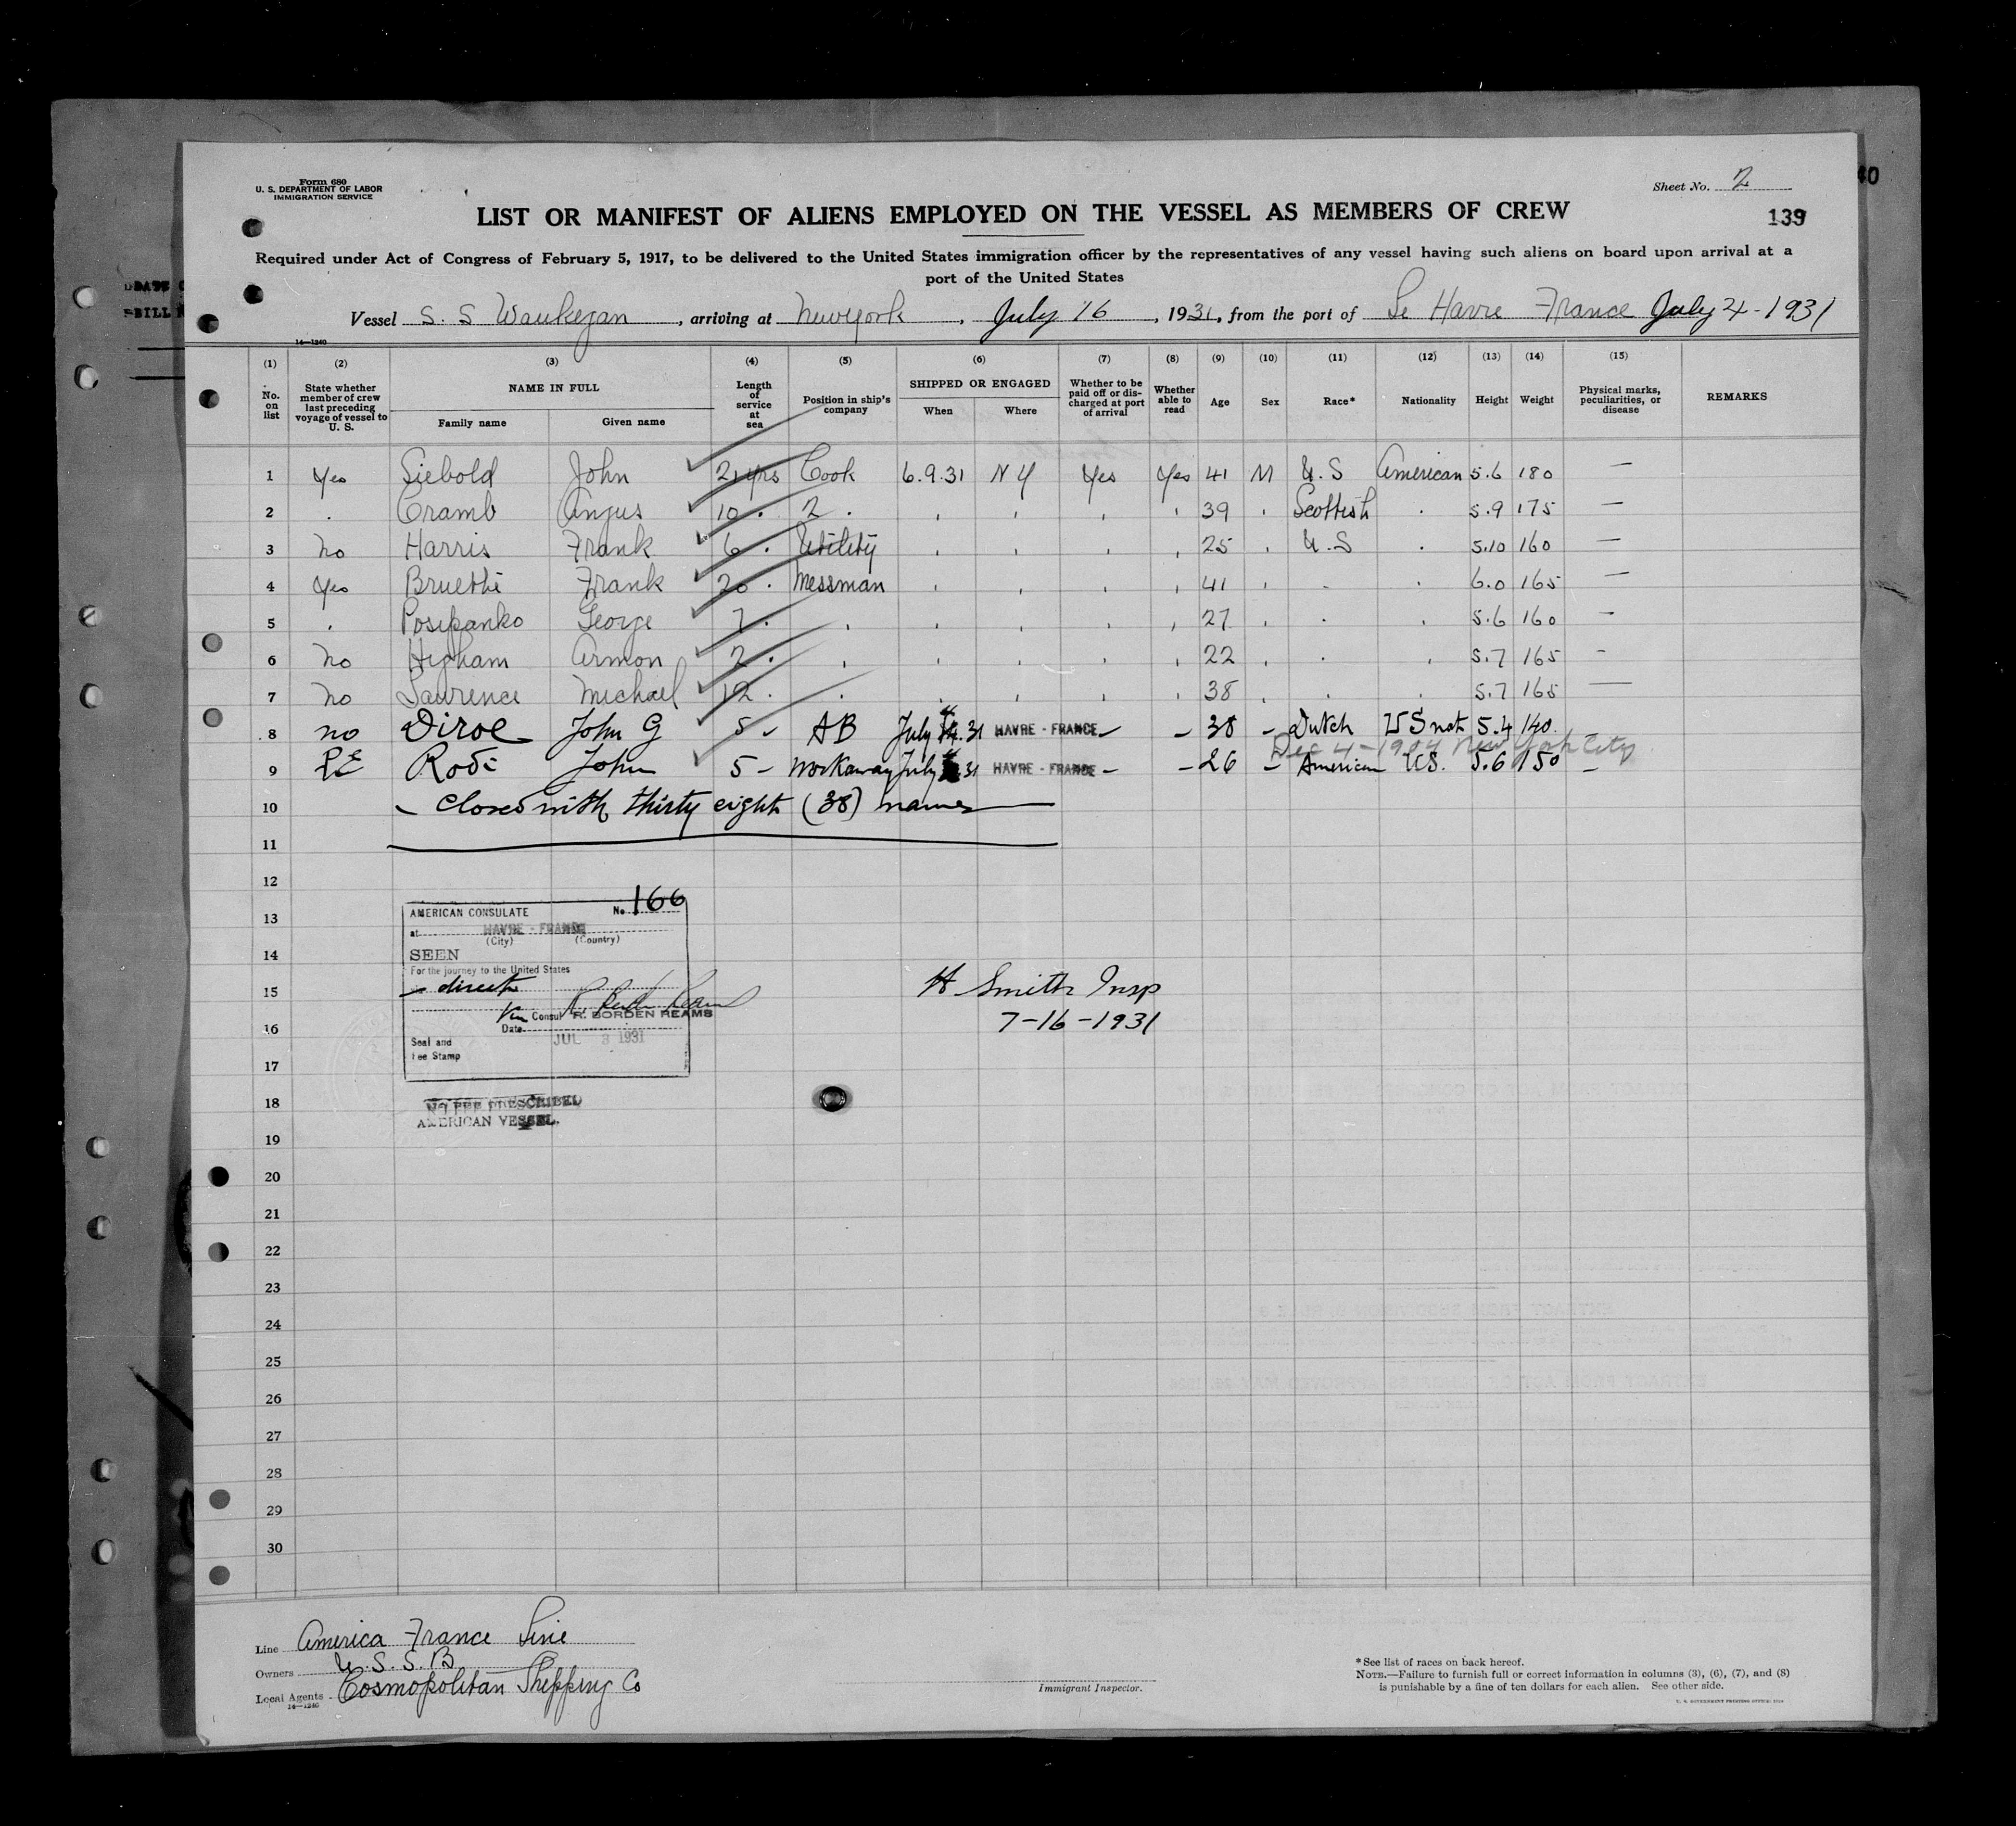 Form 680
U. S. DEPARTMENT OF LABOR
IMMIGRATION SERVICE
Sheet No. 2
LIST OR MANIFEST OF ALIENS EMPLOYED ON THE VESSEL AS MEMBERS OF CREW
139
Required under Act of Congress of February 5, 1917, to be delivered to the United States immigration officer by the representatives of any vessel having such aliens on board upon arrival at a
port of the United States
Vessel S. S Waukegan, arriving at New York, July 16, 1931, from the port of Le Havre France July 4-1931
14—1240
(1) (2) (3) (4) (5) (6) (7) (8) (9) (10) (11) (12) (13) (14) (15)
No. on list
State whether member of crew last preceding voyage of vessel to U. S.
NAME IN FULL
Family name
Given name
Length of service at sea
Position in ship's company
SHIPPED OR ENGAGED
When
Where
Whether to be paid off or discharged at port of arrival
Whether able to read
Age
Sex
Race*
Nationality
Height
Weight
Physical marks, peculiarities, or disease
REMARKS
1 Yes Siebold John 21 yrs Cook 6.9.31 N Y Yes Yes 41 M U.S American 5.6 180 —
2 . Cramb Angus 10 . 2 . . . . . 39 . Scottish . 5.9 175 —
3 no Harris Frank 6 . Utility . . . . 25 . U.S . 5.10 160 —
4 Yes Bruethi Frank 20 . Messman . . . . 41 . . . 6.0 165 —
5 . Posipanko George 7 . . . . . . 27 . . . 5.6 160 —
6 no Higham Armon 2 . . . . . . 22 . . . 5.7 165 -
7 no Lawrence Michael 12 . . . . . . 38 . . . 5.7 165 —
8 no Diroe John G 5 - AB July 31 HAVRE - FRANCE - - 38 - Dutch US nat 5.4 140.
Dec 4-1904 New York City
9 John 5 - Workaway July 31 HAVRE - FRANCE - - 26 - American US. 5.6 150 -
10 - Closed with thirty eight (38) names
11
12
13
14
15
16
17
18
19
20
21
22
23
24
25
26
27
28
29
30
AMERICAN CONSULATE No. 166
at HAVRE - FRANCE
(City) (Country)
SEEN
For the journey to the United States
- direct
Vice Consul R. BORDEN REAMS
Date JUL 3 1931
Seal and
Fee Stamp
NO FEE PRESCRIBED
AMERICAN VESSEL.
H Smith Insp
7-16-1931
Line America France Line
Owners U. S. S. B
Local Agents Cosmopolitan Shipping Co
14—1240
Immigrant Inspector.
*See list of races on back hereof.
NOTE.—Failure to furnish full or correct information in columns (3), (6), (7), and (8)
is punishable by a fine of ten dollars for each alien. See other side.